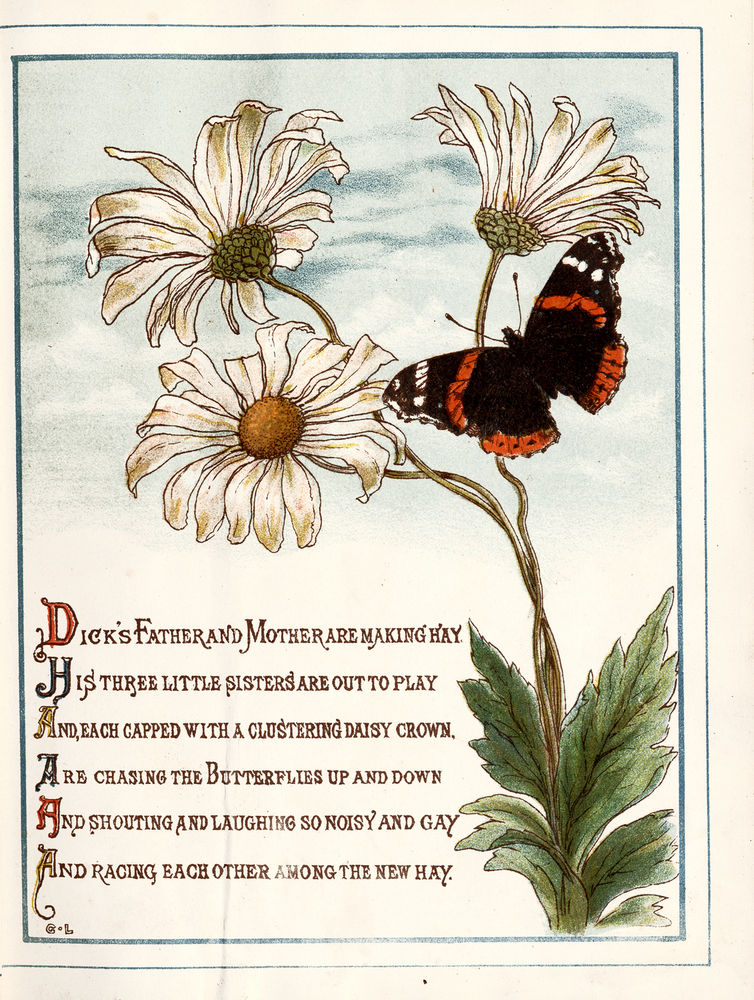 Dick's Father and Mother are making hay
His three little sisters are out to play
And, each capped with a clustering daisy crown,
Are chasing the Butterflies up and down
And shouting and laughing so noisy and gay
And racing each other among the new hay.
G·L